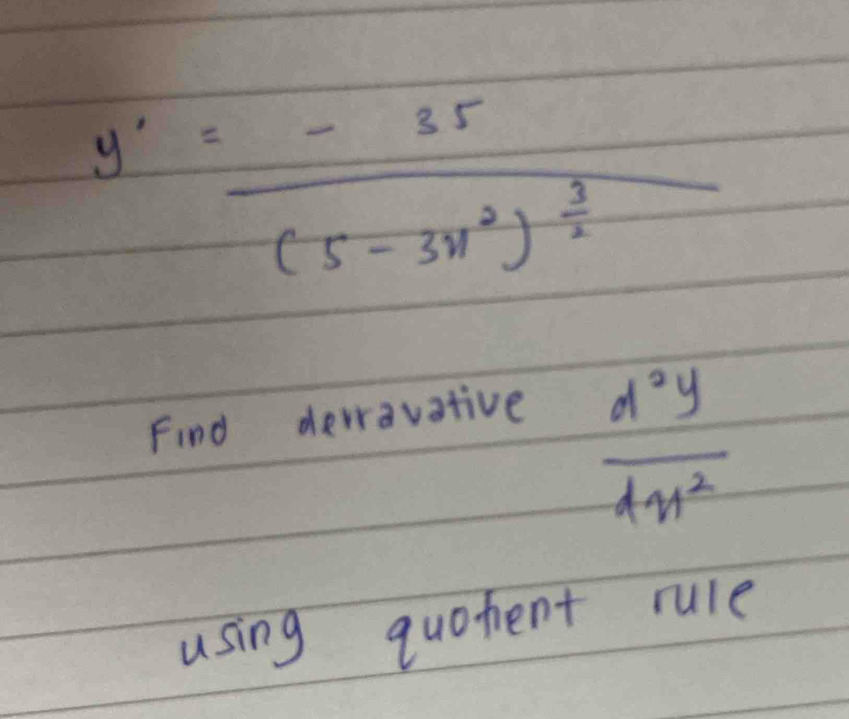 y' = - 35
(5 - 3x²)^(3/2)
Find derravative d²y
dx²
using quotient rule